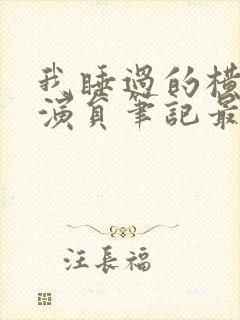 我睡過的橫
演員筆記最
汪長福